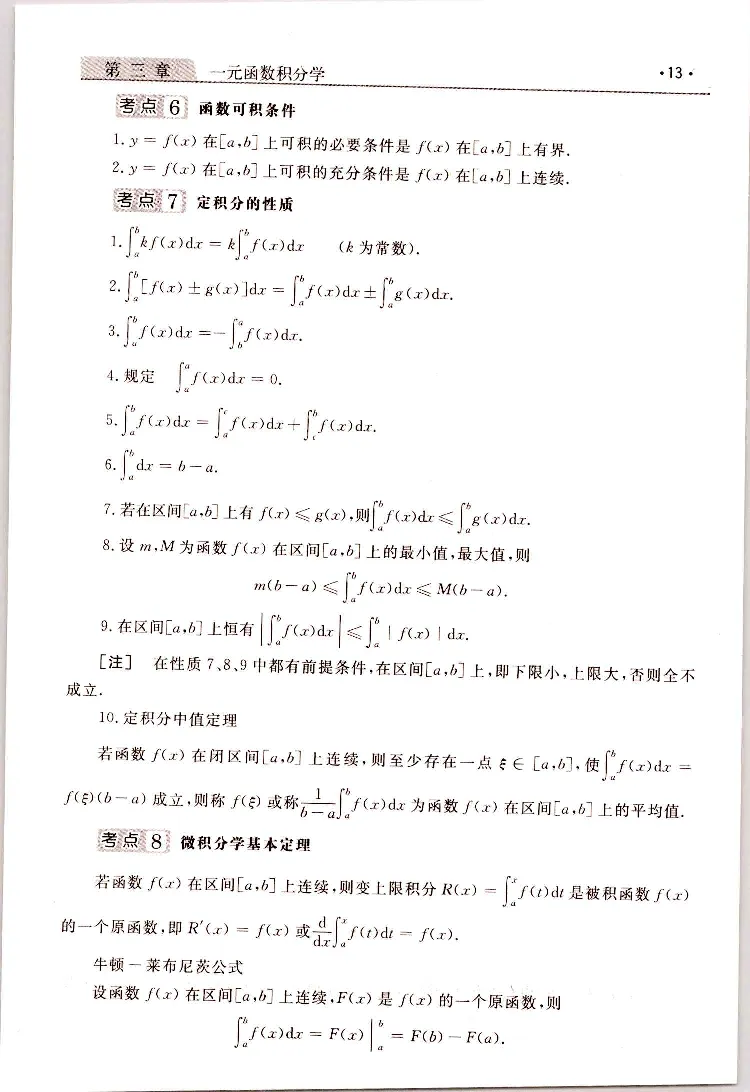 第三章 一元函数积分学 ·13·
考点 6 函数可积条件
1. y = f(x) 在[a,b] 上可积的必要条件是 f(x) 在[a,b] 上有界.
2. y = f(x) 在[a,b] 上可积的充分条件是 f(x) 在[a,b] 上连续.
考点 7 定积分的性质
1. ∫_a^b kf(x)dx = k∫_a^b f(x)dx (k 为常数).
2. ∫_a^b [f(x) ± g(x)]dx = ∫_a^b f(x)dx ± ∫_a^b g(x)dx.
3. ∫_a^b f(x)dx = −∫_b^a f(x)dx.
4. 规定 ∫_a^a f(x)dx = 0.
5. ∫_a^b f(x)dx = ∫_a^c f(x)dx + ∫_c^b f(x)dx.
6. ∫_a^b dx = b − a.
7. 若在区间[a,b] 上有 f(x) ⩽ g(x),则∫_a^b f(x)dx ⩽ ∫_a^b g(x)dx.
8. 设 m,M 为函数 f(x) 在区间[a,b] 上的最小值,最大值,则
m(b − a) ⩽ ∫_a^b f(x)dx ⩽ M(b − a).
9. 在区间[a,b] 上恒有 |∫_a^b f(x)dx| ⩽ ∫_a^b | f(x) | dx.
[注] 在性质 7、8、9 中都有前提条件,在区间[a,b] 上,即下限小,上限大,否则全不
成立.
10. 定积分中值定理
若函数 f(x) 在闭区间[a,b] 上连续,则至少存在一点 ξ ∈ [a,b],使∫_a^b f(x)dx =
f(ξ)(b − a) 成立,则称 f(ξ) 或称 1/(b − a) ∫_a^b f(x)dx 为函数 f(x) 在区间[a,b] 上的平均值.
考点 8 微积分学基本定理
若函数 f(x) 在区间[a,b] 上连续,则变上限积分 R(x) = ∫_a^x f(t)dt 是被积函数 f(x)
的一个原函数,即 R′(x) = f(x) 或 d/dx ∫_a^x f(t)dt = f(x).
牛顿 − 莱布尼茨公式
设函数 f(x) 在区间[a,b] 上连续,F(x) 是 f(x) 的一个原函数,则
∫_a^b f(x)dx = F(x) |_a^b = F(b) − F(a).